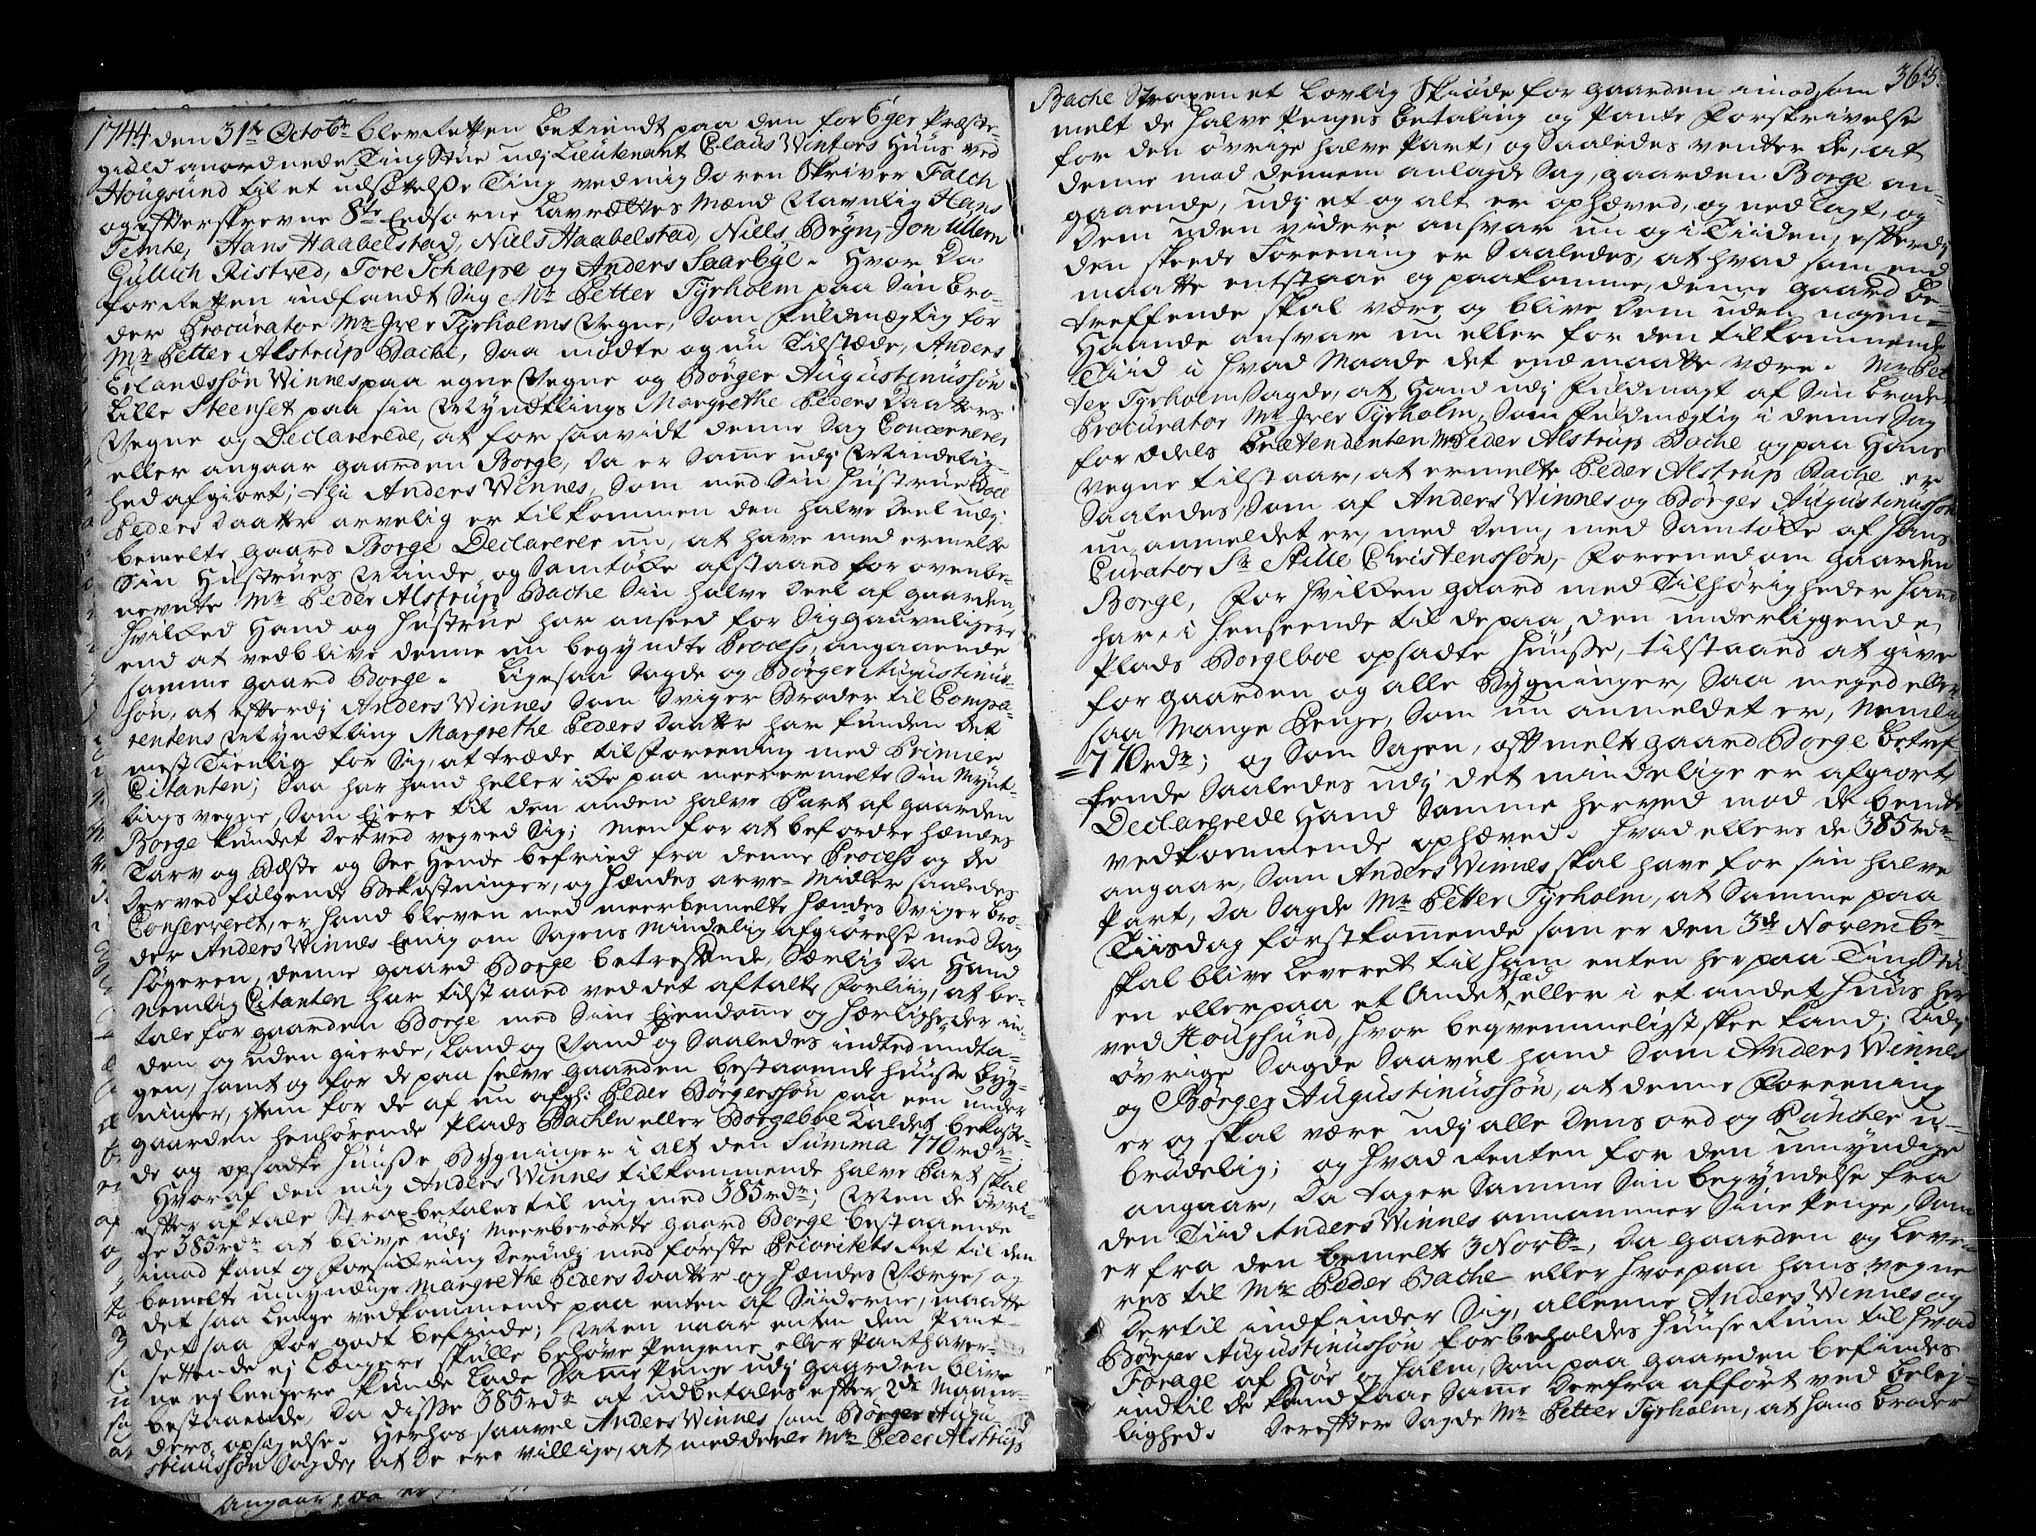 1744 den 31te Octobr blev Retten betiendt paa den for Eger Præste-
gield anordnede Ting Stue udj Lieutenant Claus Winters Huus ved
Hougsund til et udsættelsse Ting ved mig Soren Skriver Falch
og efterskrevne 8te Eedsorne Laurættes Mænd Navnlig Hans
Temte, Hans Haabelstad, Niels Haabelstad, Niels Bryn, Jon Ullern
Gullich Ristved, Tore Schalpe og Anders Saarbye. Hvor Da
for Retten indfandt Sig Mr Petter Tyrholm paa Sin Bro-
der Procurator Mr Iver Tyrholms Vegne, Som fuldmægtig for
Mr Petter Alstrup Bache, Saa mødte og nu Tilstæde, Anders
Erlandssøn Winnes paa egne Vegne og Børger Augustinussøn
Lille Steenset paa sin Myndtlings Margrethe Peders Daatters
Vegne og Declarerede, at for saavidt denne Sag Concernerer
eller angaar gaarden Borge, Da er Same udj Mindelig-
hed afgiort; thi Anders Winnes, Som med Sin Hustrue
Peders Daatter arvelig er tilkommen den halve Deel udj
bemelte gaard Borge Declarerer nu, at have med ermelte
Sin Hustrues Minde og Samtøcke afstaaed for ovenbe-
nevnte Mr Peder Alstrup Bache Sin halve Deel af gaarden,
hvilked Hand og Hustrue har anseed for Sig gavnligere
end at vedblive denne nu begyndte Process, angaaende
samme gaard Borge. Ligesaa Sagde og Børger Augustinus-
søn, at efterdj Anders Winnes Som Sviger Broder til Compa-
rentens Myndtling Margrethe Peders Daatter har funden Det
mest Tienlig for Sig, at træde til Foreening med
Citanten; Saa har hand heller icke paa meerermelte Sin Mynt-
lings vegne, Som Eiere til den anden halve Part af gaarden
Borge kundet Derved vegred Sig; Men for at befordre hændes
Tarv og Bæste og See Hende befried fra denne Process og de
Derved følgende Bekostninger, og hændes arve-Midler saaledes
Conserveret, er hand bleven med meerbemelte hændes Sviger Bro-
der Anders Winnes Eenig om Sagens Mindelig afgiørelse med Sag
søgeren, denne gaard Borge betreffende, Særlig Da Hand
Nemlig Citanten har tilstaaed ved det aftalte Forliig, at be-
tale for gaarden Borge med Sine Eiendomme og Herligheder in-
den og uden gierde, Land og Vand og Saaledes indted undta-
gen, samt og for de paa selve gaarden bestaaende huusse Byg-
ninger, item for de af nu afg: Peder Børgerssøn paa een under
gaarden henhørende Plads Bachen eller Borgeboe Kaldet bekost-
de og opsadte huusse Bygninger i alt den Summa 770rdr:
Hvoraf den mig Anders Winnes tilkommende halve Part skal
efter aftale Strax betales til mig med 385rdr; Men de øvri-
ge 385rdr at blive udj Meerberørte gaard Borge bestaaende
imod Pant og Forsikring Derudj med første Prioritets Ret til den
bemelte umyndige Margrethe Peders Daatter og hændes Værge, og
det saa lenge vedkommende paa enten af Siiderne, maatte
det saa for godt befinde; Men naar enten den Pant-
settende ej længere skulle behøve Pengene eller Panthaver-
ne ej lengere kunde lade Samme Penge udj gaarden blive
bestaaende, Da disse 385rdr at udbetales efter 2de Maane-
ders opsigelse. Herhos saavel Anders Winnes som Børger Augu-
stinussøn Sagde, at De ere villige, at meddeele Mr Peder Alstrup
363.
Bache Straxen et Lovlig Skiøde for gaarden imod som
melt de halve Penges Betaling og Pante Forskrivelse
for den øvrige halve Part, og Saaledes venter de, at
denne mod Dennem anlagde Sag, gaarden Borge an-
gaaende, udj et og alt er ophæved, og nedlagt, og
Dem uden videre ansvar nu og i Tiiden, efterdj
den skeede Foreening er Saaledes, at hvad som end
maatte entstaae og paakomme, denne gaard be-
treffende skal være og blive Dem uden nogen-
Haande ansvar nu eller for den tilkommende
Tiid i hvad Maade det end maatte være. Mr Pet-
ter Tyrholm Sagde, at Hand udj fuldmagt af Sin Broder
Procurator Mr Iver Tyrholm, Som fuldmægtig i denne Sag
for Odels Prætendenten Mr Peder Alstrup Bache og paa Hans
Vegne tilstaar, at ermelte Peder Alstrup Bache er
Saaledes, Som af Anders Winnes og Borger Augustinussøn
nu anmeldet er, med Dem, med Samtøcke af hans
Curator Sr Stille Christenssøn, Foreened om gaarden
Borge, For hvilken gaard med Tilhørigheder hand
har i henseende til de paa den underliggende
Plads Borgeboe opsadte huusse, tilstaaed at give
for gaarden og alle Bygninger, Saa meged eller
saa Mange Penge, Som nu anmeldet er, Nemlig
770rdr; og Som Sagen, oftmelte gaard Borge betref-
fende Saaledes udj det mindelige er afgiort,
Declarerede Hand Samme herved mod de bemte
vedkommende ophæved. Hvad ellers de 385rdr
angaar, Som Anders Winnes skal have for sin halve
Part, Da Sagde Mr Petter Tyrholm, at Samme paa
Tiisdag førstkommende som er den 3de Novembr
skal blive Leveret til ham enten her paa Ting Stu-
en eller paa et Andet Stæd, eller i et andet Huus her
ved Hougsund, hvor beqvemmeligst skee kand; Udj
øvrige Sagde Saavel hand Som Anders Winnes
og Børger Augustinussøn, at denne Foreening
er og skal være udj alle Dens ord og Puncter u-
brødelig; og hvad Renten for den umyndige
angaar, Da tager Samme Sin begyndelse fra
den Tiid Anders Winnes annammer Sine Penge, Som
er fra den bemelte 3 Novbr, Da gaarden og Leve-
res til Mr Peder Bache eller hvo paa hans vegne
Dertil indfinder Sig, alleene Anders Winnes og
Børger Augustinussøn forbeholdes Huuse Rum til hvad
Forage af Høe og Halm, Som paa gaarden befindes
indtil de kand faae Same Derfra afført ved belej-
lighed. Derefter Sagde Mr Petter Tyrholm, at hans Broder